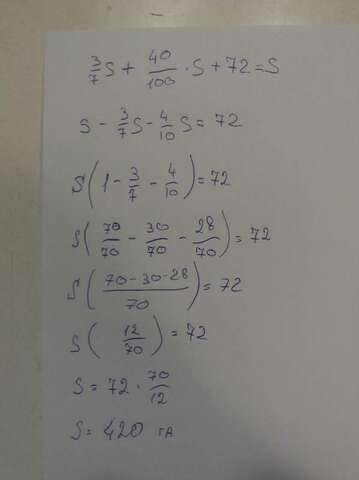 3/7 S + 40/100 · S + 72 = S
S - 3/7 S - 4/10 S = 72
S(1 - 3/7 - 4/10) = 72
S(70/70 - 30/70 - 28/70) = 72
S(70-30-28/70) = 72
S(12/70) = 72
S = 72 · 70/12
S = 420 га